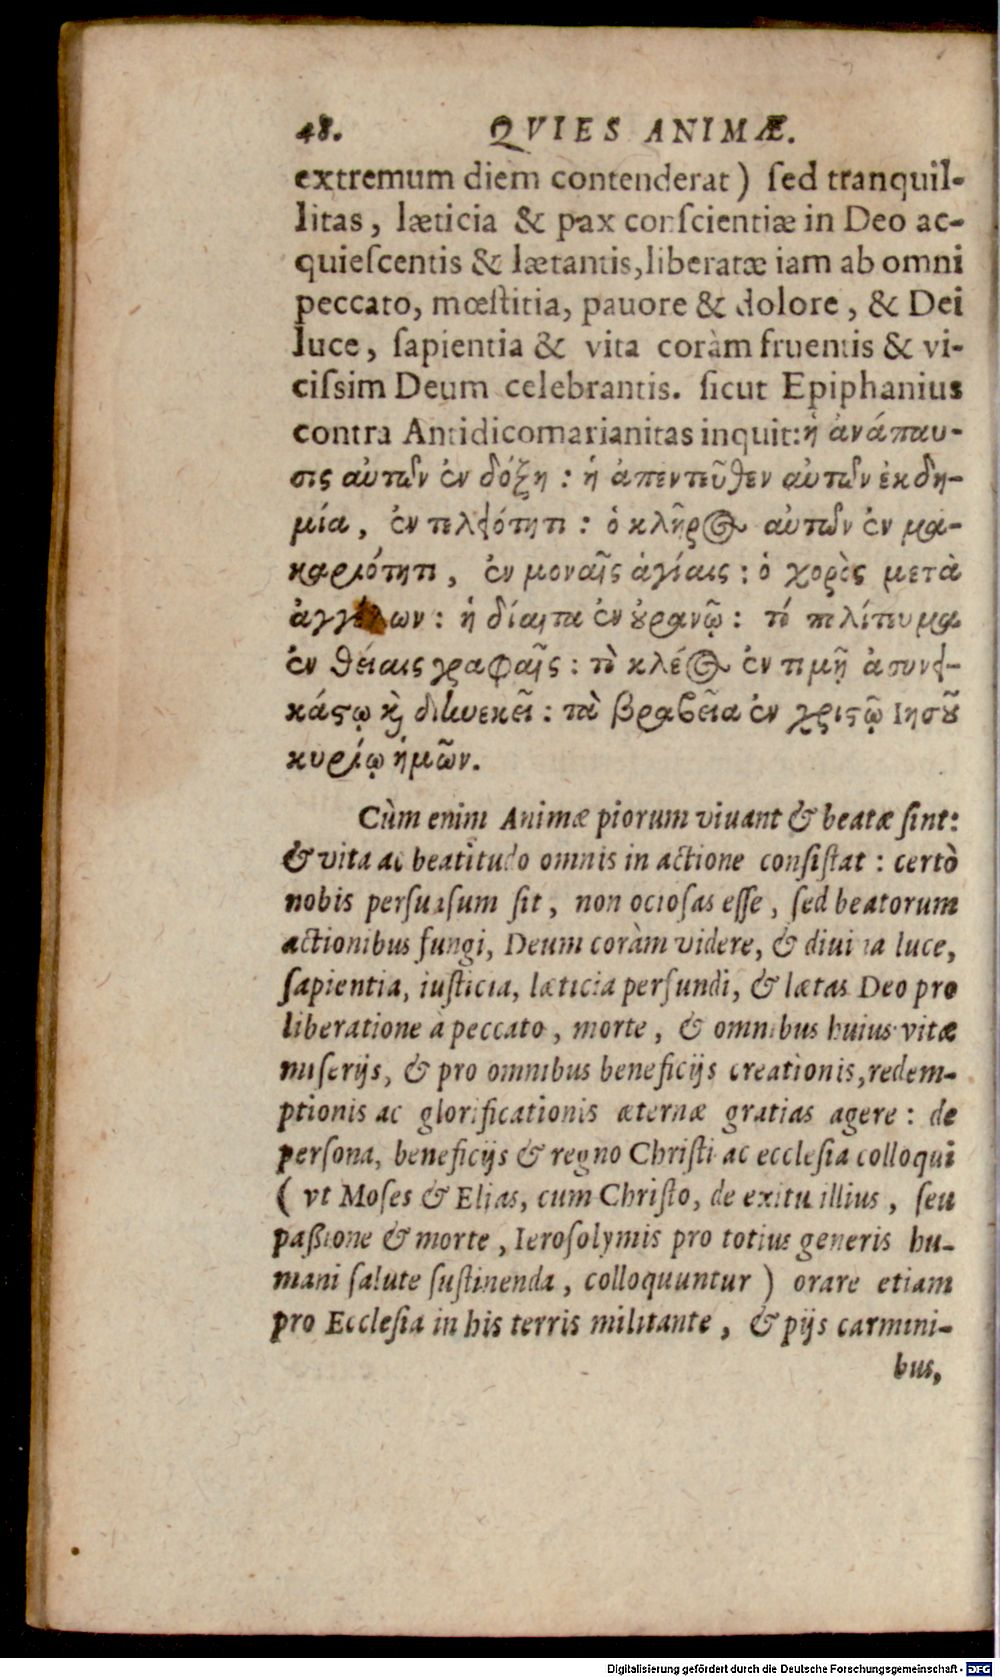 48. QVIES ANIMÆ.
extremum diem contenderat) ſed tranquil-
litas, læticia & pax conſcientiæ in Deo ac-
quieſcentis & lætantis, liberatæ iam ab omni
peccato, mœſtitia, pauore & dolore, & Dei
luce, ſapientia & vita coràm fruentis & vi-
ciſsim Deum celebrantis. ſicut Epiphanius
contra Antidicomarianitas inquit: ἡ ἀνάπαυ-
σις αὐτῶν ἐν δόξῃ: ἡ ἀπεντεῦθεν αὐτῶν ἐκδη-
μία, ἐν τελειότητι: ὁ κλῆρος αὐτῶν ἐν μα-
καριότητι, ἐν μοναῖς ἁγίαις: ὁ χορὸς μετὰ
ἀγγέλων: ἡ δίαιτα ἐν οὐρανῷ: τό πολίτευμα
ἐν θείαις γραφαῖς: τὸ κλέος ἐν τιμῇ ἀσυνει-
κάςῳ καὶ διηνεκεῖ: τὰ βραβεῖα ἐν χριςῷ Ιησοῦ
κυρίῳ ἡμῶν.
Cùm enim Animæ piorum viuant & beatæ ſint:
& vita ac beatitudo omnis in actione conſiſtat: certò
nobis perſuaſum ſit, non ocioſas eſſe, ſed beatorum
actionibus fungi, Deum coràm videre, & diuina luce,
ſapientia, iuſticia, læticia perfundi, & lætas Deo pro
liberatione à peccato, morte, & omnibus huius vitæ
miſerijs, & pro omnibus beneficijs creationis, redem-
ptionis ac glorificationis æternæ gratias agere: de
perſona, beneficijs & regno Chriſti ac eccleſia colloqui
( vt Moſes & Elias, cum Chriſto, de exitu illius, ſeu
paßione & morte, Ieroſolymis pro totius generis hu-
mani ſalute ſuſtinenda, colloquuntur ) orare etiam
pro Eccleſia in his terris militante, & pijs carmini-
bus,
Digitalisierung gefördert durch die Deutsche Forschungsgemeinschaft - DFG